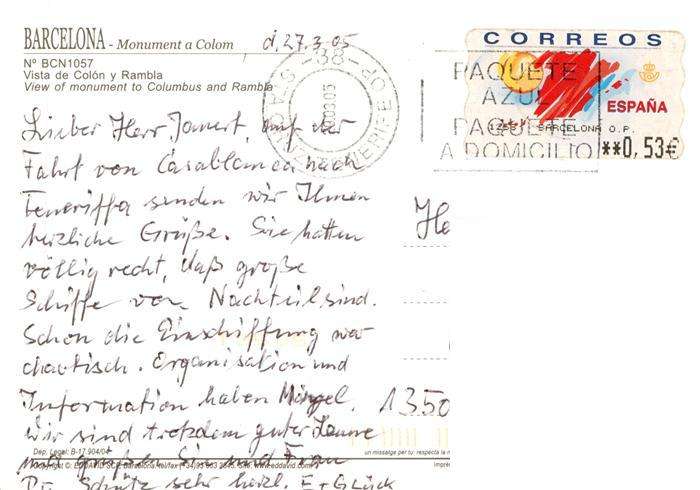 BARCELONA - Monument a Colom
d, 27.3.05
Nº BCN1057
Vista de Colón y Rambla
View of monument to Columbus and Rambla
Lieber Herr Jannert, auf der
Fahrt von Casablanca nach
Teneriffa senden wir Ihnen
herzliche Grüße. Sie hatten
völlig recht, daß große
Schiffe von Nachteil sind.
Schon die Einschiffung war
chaotisch. Organisation und
Information haben Mängel.
Wir sind trotzdem guter Laune
und grüßen Sie und Frau
Dr. Schütz sehr herzl. E+G Glück
Dep. Legal: B-17.904/04
un missatge per tu: respecta la n
CORREOS
ESPAÑA
BARCELONA O.P.
**0,53€
-38-
PAQUETE
AZUL
PAQUETE
A DOMICILIO
He
1350